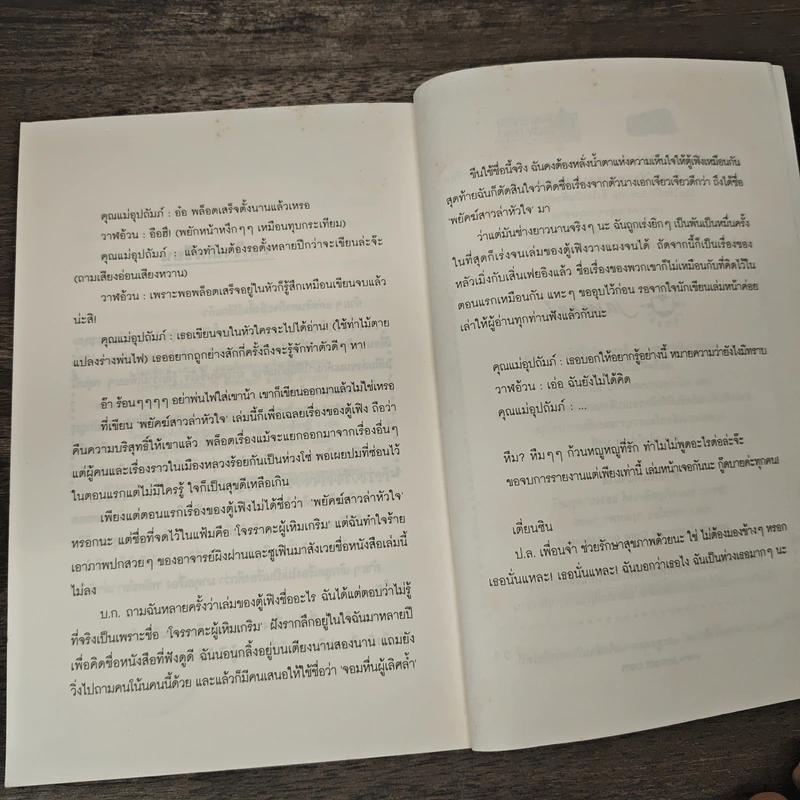 คุณแม่อุปถัมภ์ : อ๋อ พล็อตเสร็จตั้งนานแล้วเหรอ
วาฬอ้วน : อือฮึ (พยักหน้าหงึกๆๆ เหมือนทุบกระเทียม)
คุณแม่อุปถัมภ์ : แล้วทำไมต้องรอตั้งหลายปีกว่าจะเขียนล่ะจ๊ะ
(ถามเสียงอ่อนเสียงหวาน)
วาฬอ้วน : เพราะพอพล็อตเสร็จอยู่ในหัวก็รู้สึกเหมือนเขียนจบแล้ว
น่ะสิ!
คุณแม่อุปถัมภ์ : เธอเขียนจบในหัวใครจะไปได้อ่าน! (ใช้ท่าไม้ตาย
แปลงร่างพ่นไฟ) เธออยากถูกย่างสักกี่ครั้งถึงจะรู้จักทำตัวดีๆ หา!
อ๊า ร้อนๆๆๆๆ อย่าพ่นไฟใส่เขาน้า เขาก็เขียนออกมาแล้วไม่ใช่เหรอ
ที่เขียน 'พยัคฆ์สาวล่าหัวใจ' เล่มนี้ก็เพื่อเฉลยเรื่องของตู้เฟิง ถือว่า
คืนความบริสุทธิ์ให้เขาแล้ว พล็อตเรื่องแม้จะแยกออกมาจากเรื่องอื่นๆ
แต่ผู้คนและเรื่องราวในเมืองหลวงร้อยกันเป็นห่วงโซ่ พอเผยปมที่ซ่อนไว้
ในตอนแรกแต่ไม่มีใครรู้ ใจก็เป็นสุขดีเหลือเกิน
เพียงแต่ตอนแรกเรื่องของตู้เฟิงไม่ได้ชื่อว่า 'พยัคฆ์สาวล่าหัวใจ'
หรอกนะ แต่ชื่อที่จดไว้ในแฟ้มคือ 'โจรราคะผู้เหิมเกริม' แต่ฉันทำใจร้าย
เอาภาพปกสวยๆ ของอาจารย์ผิงฝานและซูเฟินมาสังเวยชื่อหนังสือเล่มนี้
ไม่ลง
บ.ก. ถามฉันหลายครั้งว่าเล่มของตู้เฟิงชื่ออะไร ฉันได้แต่ตอบว่าไม่รู้
ที่จริงเป็นเพราะชื่อ 'โจรราคะผู้เหิมเกริม' ฝังรากลึกอยู่ในใจฉันมาหลายปี
เพื่อคิดชื่อหนังสือที่ฟังดูดี ฉันนอนกลิ้งอยู่บนเตียงนานสองนาน แถมยัง
วิ่งไปถามคนโน้นคนนี้ด้วย และแล้วก็มีคนเสนอให้ใช้ชื่อว่า 'จอมหื่นผู้เลิศล้ำ'
ขืนใช้ชื่อนี้จริง ฉันคงต้องหลั่งน้ำตาแห่งความเห็นใจให้ตู้เฟิงเหมือนกัน
สุดท้ายฉันก็ตัดสินใจว่าคิดชื่อเรื่องจากตัวนางเอกเจียวเจียวดีกว่า ถึงได้ชื่อ
'พยัคฆ์สาวล่าหัวใจ' มา
ว่าแต่มันช่างยาวนานจริงๆ นะ ฉันถูกเร่งยิกๆ เป็นพันเป็นหมื่นครั้ง
ในที่สุดก็เร่งจนเล่มของตู้เฟิงวางแผงจนได้ ถัดจากนี้ก็เป็นเรื่องของ
หลัวเมิ่งกับเสิ่นเฟยอิงแล้ว ชื่อเรื่องของพวกเขาก็ไม่เหมือนกับที่คิดไว้ใน
ตอนแรกเหมือนกัน แหะๆ ขออุบไว้ก่อน รอจากใจนักเขียนเล่มหน้าค่อย
เล่าให้ผู้อ่านทุกท่านฟังแล้วกันนะ
คุณแม่อุปถัมภ์ : เธอบอกให้อยากรู้อย่างนี้ หมายความว่ายังไงมิทราบ
วาฬอ้วน : เอ่อ ฉันยังไม่ได้คิด
คุณแม่อุปถัมภ์ : ...
หืม? หืมๆๆ ก้วนหญูหญูที่รัก ทำไมไม่พูดอะไรต่อล่ะจ๊ะ
ขอจบการรายงานแต่เพียงเท่านี้ เล่มหน้าเจอกันนะ กู๊ดบายค่ะทุกคน!
เตี่ยนซิน
ป.ล. เพื่อนจ๋า ช่วยรักษาสุขภาพด้วยนะ ใช่ ไม่ต้องมองข้างๆ หรอก
เธอนั่นแหละ! เธอนั่นแหละ! ฉันบอกว่าเธอไง ฉันเป็นห่วงเธอมากๆ นะ